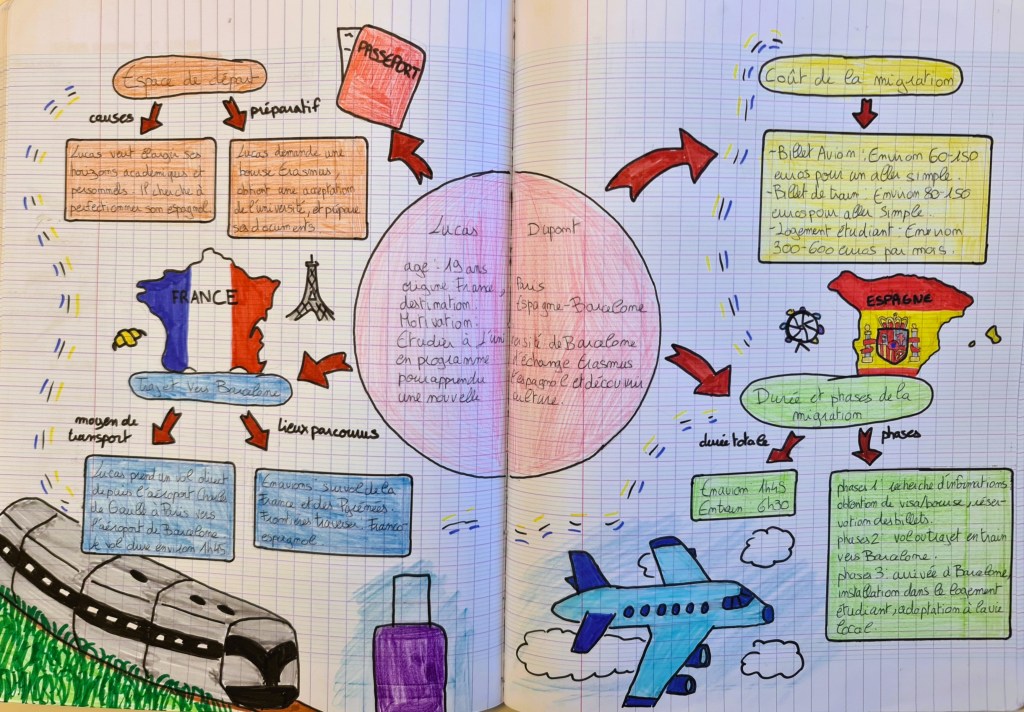 Espace de départ
causes
préparatif
Lucas veut élargir ses
horizons académiques et
personnels. Il cherche à
perfectionner son espagnol
Lucas demande une
bourse Erasmus,
obtient une acceptation
de l'université, et prépare
ses documents.
PASSEPORT
FRANCE
trajet vers Barcelone
moyen de
transport
lieux parcourus
Lucas prend un vol direct
depuis l'aéroport Charles
de Gaulle à Paris vers
l'aéroport de Barcelone
le vol dure environ 1h45
En avions : survol de la
France et des Pyrénées.
Frontières traverser Franco-
espagnol
Lucas Dupont
age : 19 ans
origine France, Paris
destination. Espagne-Barcelone
Motivation.
Étudier à L'université de Barcelone
en programme d'échange Erasmus
pour apprendre l'espagnol et découvrir
une nouvelle culture.
Coût de la migration
-Billet Avion : Environ 60-150
euros pour un aller simple.
-Billet de train : Environ 80-150
euros pour aller simple.
-Logement étudiant : Environ
300-600 euros par mois.
ESPAGNE
Durée et phases de la
migration
durée totale
phases
En avion 1h45
En train 6h30
phases 1 : recherche d'informations
obtention de visa/bourse, réser-
vation des billets.
phases 2 : vol ou trajet en train
vers Barcelone.
phases 3 : arrivée à Barcelone,
installation dans le logement
étudiant, adaptation à la vie
local.